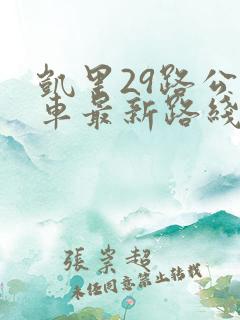 凯里29路公
车最新路线
張崇超
未经同意禁止转载